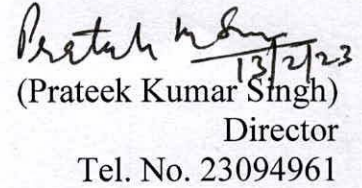 Prateek K Sin
13/2/23
(Prateek Kumar Singh)
Director
Tel. No. 23094961